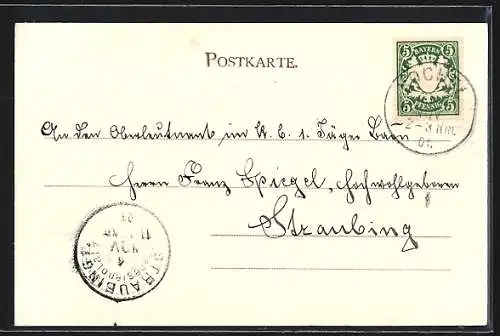 POSTKARTE.
5 BAYERN 5
5 PFENNIG 5
NOV
2-3 NM.
01.
An den Oberleutnant im K. b. 1. Jäger Baon
Herrn Franz Spiegel, Hochwohlgeboren
Straubing
STRAUBING
4
NOV
11